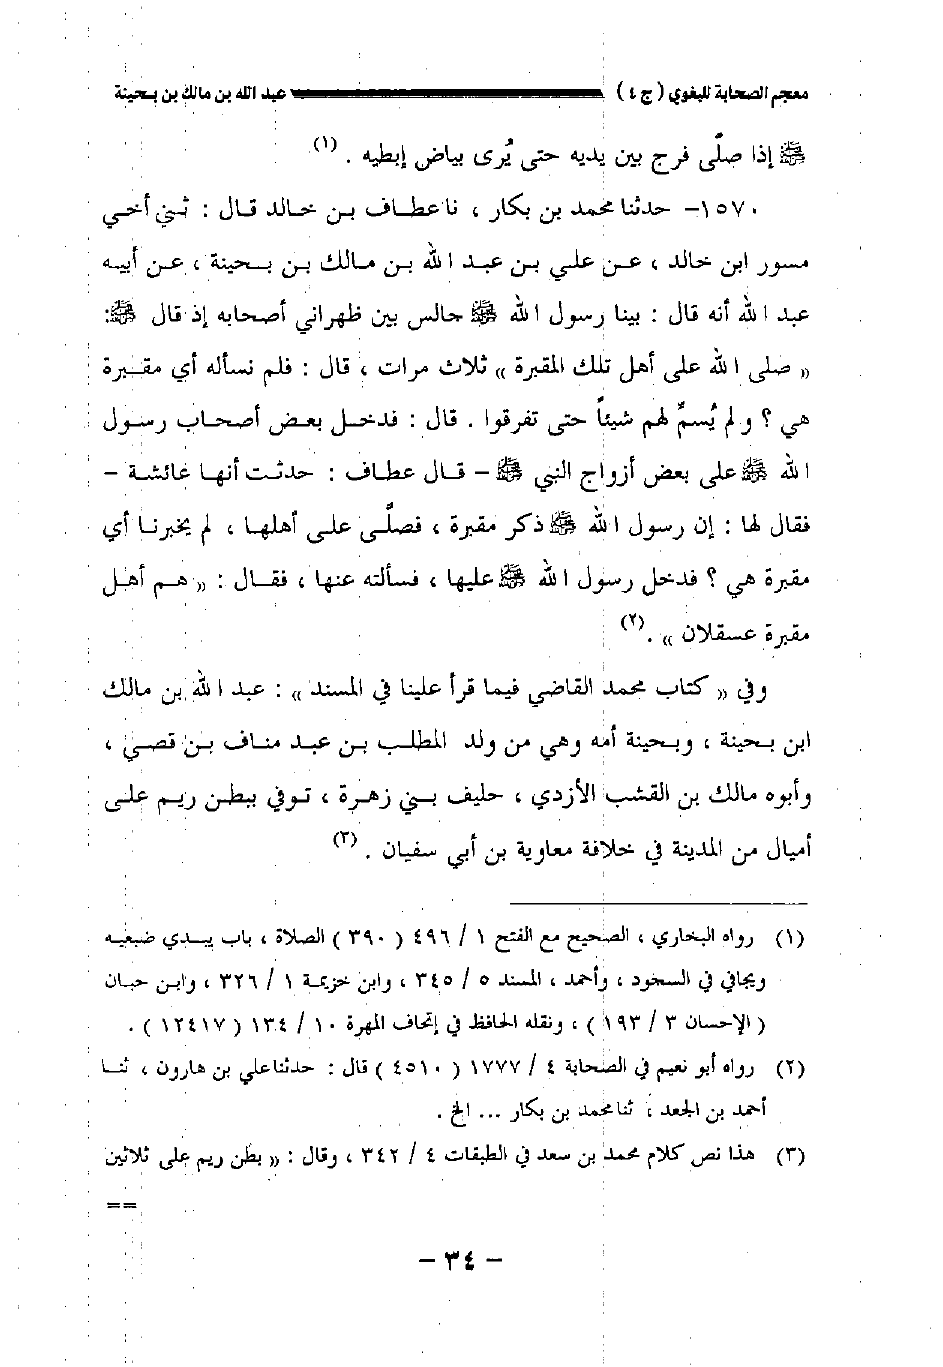 معجم الصحابة للبغوي ( ج ٤ ) عبد الله بن مالك بن بحينة
ﷺ إذا صلّى فرج بين يديه حتى يُرى بياض إبطيه . (١)
١٥٧٠- حدثنا محمد بن بكار ، نا عطاف بن خالد قال : ثني أخي
مسور ابن خالد ، عن علي بن عبد الله بن مالك بن بحينة ، عن أبيه
عبد الله أنه قال : بينا رسول الله ﷺ جالس بين ظهراني أصحابه إذ قال ﷺ:
« صلى الله على أهل تلك المقبرة » ثلاث مرات ، قال : فلم نسأله أي مقبرة
هي ؟ و لم يُسمِّ لهم شيئاً حتى تفرقوا . قال : فدخل بعض أصحاب رسول
الله ﷺ على بعض أزواج النبي ﷺ – قال عطاف : حدثت أنها عائشة –
فقال لها : إن رسول الله ﷺ ذكر مقبرة ، فصلّى على أهلها ، لم يخبرنا أي
مقبرة هي ؟ فدخل رسول الله ﷺ عليها ، فسألته عنها ، فقال : « هم أهل
مقبرة عسقلان » . (٢)
وفي « كتاب محمد القاضي فيما قرأ علينا في المسند » : عبد الله بن مالك
ابن بحينة ، وبحينة أمه وهي من ولد المطلب بن عبد مناف بن قصي ،
وأبوه مالك بن القشب الأزدي ، حليف بني زهرة ، توفي ببطن ريم على
أميال من المدينة في خلافة معاوية بن أبي سفيان . (٣)
(١) رواه البخاري ، الصحيح مع الفتح ١ / ٤٩٦ ( ٣٩٠ ) الصلاة ، باب يبدي ضبعيه
ويجافي في السجود ، وأحمد ، المسند ٥ / ٣٤٥ ، وابن خزيمة ١ / ٣٢٦ ، وابن حبان
( الإحسان ٣ / ١٩٣ ) ، ونقله الحافظ في إتحاف المهرة ١٠ / ١٣٤ ( ١٢٤١٧ ) .
(٢) رواه أبو نعيم في الصحابة ٤ / ١٧٧٧ ( ٤٥١٠ ) قال : حدثنا علي بن هارون ، ثنا
أحمد بن الجعد ، ثنا محمد بن بكار ... الخ .
(٣) هذا نص كلام محمد بن سعد في الطبقات ٤ / ٣٤٢ ، وقال : « بطن ريم على ثلاثين
==
– ٣٤ –